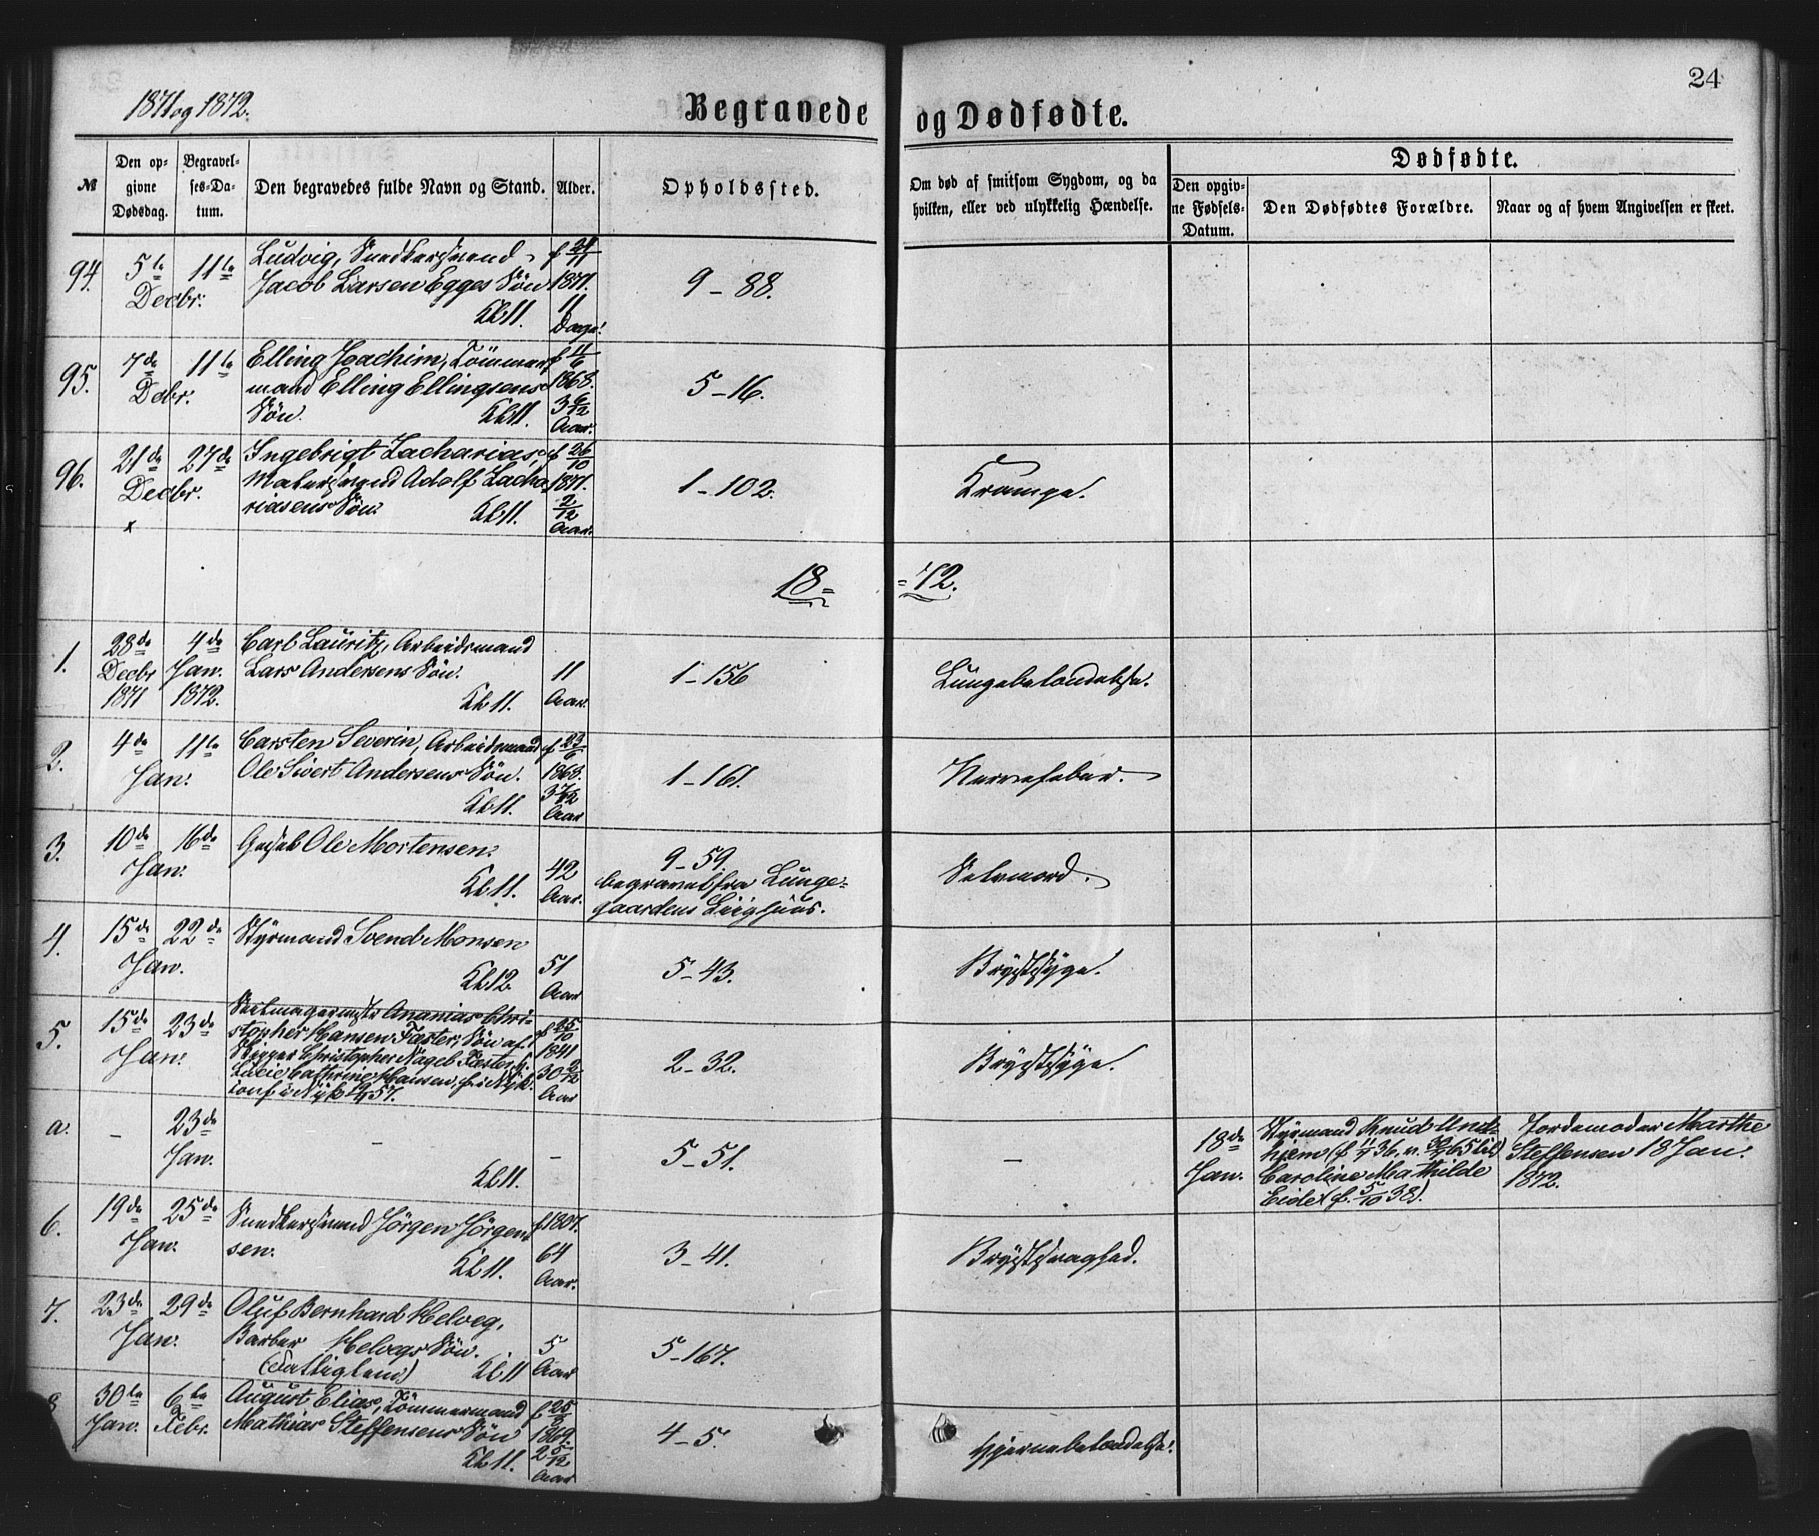 24
1871 og 1872.
Begravede og Dødfødte.
№
Den opgivne Dødsdag.
Begravelses-Datum.
Den begravedes fulde Navn og Stand.
Alder.
Opholdssted.
Om død af smitsom Sygdom, og da hvilken, eller ved ulykkelig Hændelse.
Dødfødte.
Den opgivne Fødsels-Datum.
Den Dødfødtes Forældre.
Naar og af hvem Angivelsen er skeet.
94. 5te Decbr. 11te
Ludvig, Snedkersvend
Jacob Larsen Egges Søn
Kl 11.
f 24/11 1871. 11 Dage.
9 - 88.
95. 7de Decbr. 11te
Elling Joachim, Tømmermand Elling Ellingsens Søn.
Kl 11.
f 11/6 1868. 3 6/12 Aar.
5 - 16.
96. 21de Decbr. 27de
x
Ingebrigt Zacharias,
Malersvend Adolf Zachariasens Søn.
Kl 11.
f 26/10 1871. 2/12 Aar.
1 - 102.
Krampe.
18 = = 72.
1. 28de Decbr 1871 4de Jan. 1872.
Carl Lauritz, Arbeidsmand
Lars Andersens Søn.
Kl 11.
11 Aar.
1 - 156
Lungebetændelse.
2. 4de Jan. 11te
Carsten Severin, Arbeidsmand
Ole Sivert Andersens Søn.
Kl 11.
f 23/6 1868. 3 7/12 Aar
1 - 161.
Nervefeber.
3. 10de Jan. 16de
Gesel Ole Mortensen.
Kl 11.
42 Aar.
9 - 59.
begravet fra Lungegaardens Liighuus.
Selvmord.
4. 15de Jan. 22de
Styrmand Svend Monsen
Kl 12.
51 Aar
5 - 43.
Brystsyge.
5. 15de Jan. 23de
Ananias Christopher Hansen Fæster, Søn af
Skipper Christopher Nagel Fæster,
Lucie Cathrine Hansen,
f 25/10 1841 30 2/12 Aar
2 - 32.
Brystsyge.
a. - 23de Jan.
-
Kl 11.
-
5 - 51.
-
18de Jan.
Styrmand Knud Andhjem (f 11/4 36. v. 30/4 65 til)
Caroline Mathilde
Eide (f. 5/10 38).
Jordemoder Marthe
Steffensen 18 Jan.
1872.
6. 19de Jan. 25de
Snedkersvend Jörgen Jörgensen.
Kl 11.
f 1807. 64 Aar.
3 - 41.
Brystsvaghed.
7. 23de Jan. 29de
Oluf Bernhard Helveg,
Barber Helvegs Søn.
(Fattiglem)
Kl 11
5 Aar
5 - 167.
8 30te Jan. 6te Febr.
August Elias, Tømmermand
Mathias Steffensens Søn
Kl 11.
f 25/8 1869. 2 5/12 Aar
4 - 5.
Hjernebetændelse.